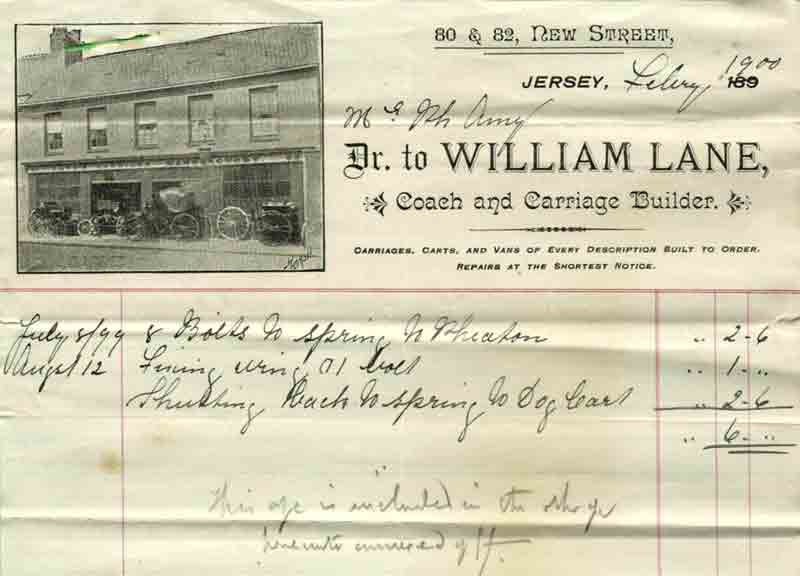 80 & 82, New Street,
Jersey, Febry 1900 189
Mr Ph Amy
Dr. to WILLIAM LANE,
Coach and Carriage Builder.
Carriages, Carts, and Vans of Every Description Built to Order.
Repairs at the Shortest Notice.
July 8/99 8 Bolts to spring to Pheaton " 2-6
Augst 12 wing & 1 bolt " 1-"
Shutting Back to spring to Dog Cart " 2-6
" 6-"
This a/c is included in the other a/c
annexed